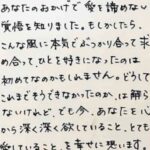 あなたのおかげで愛を諦めない
覚悟を知りました。もしかしたら、
こんな風に本気でぶつかり合って求
め合ってひとを好きになったのは
初めてなのかもしれません。どうして
これまでそうできなかったのか、は解ら
ないけれど、でも今、あなたを心
から深く深く欲していること、とても
愛していること、を幸せに想います。